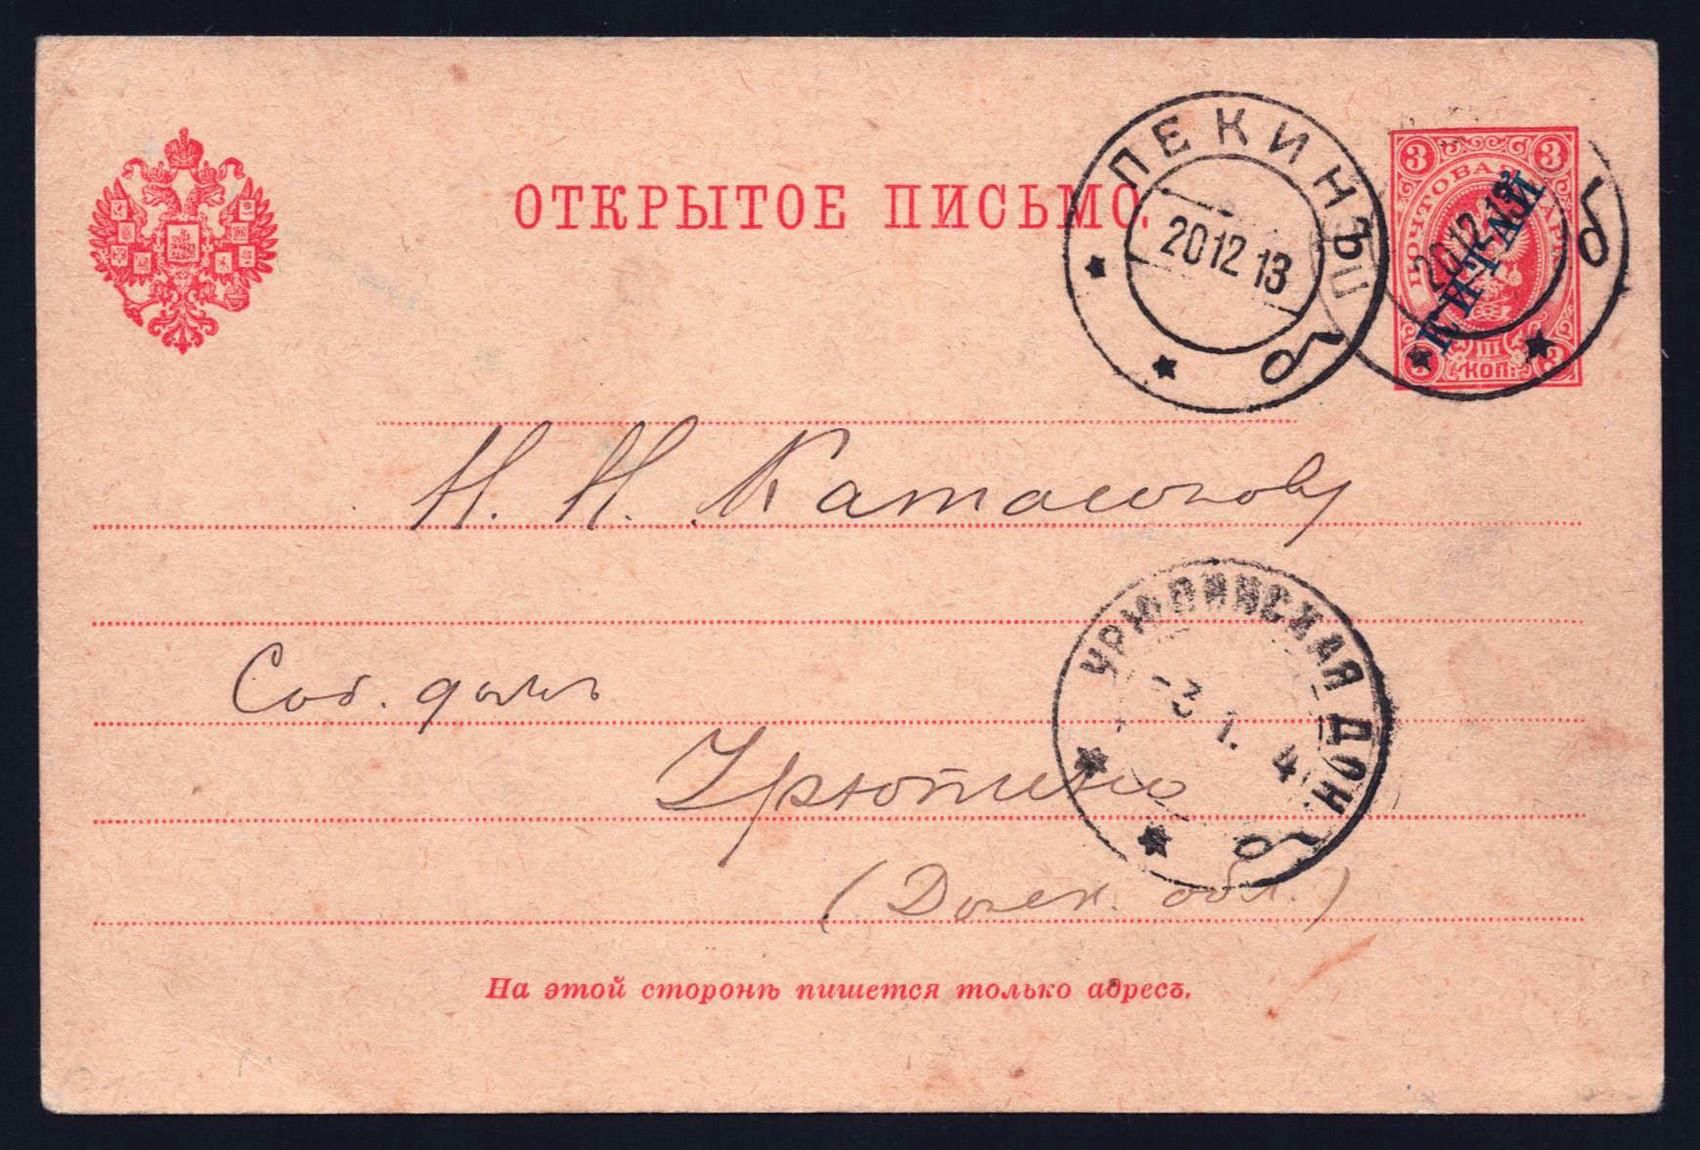 ОТКРЫТОЕ ПИСЬМО.
ПЕКИНЪ П
20 12 13
б
3 3
ПОЧТОВАЯ МАРКА
КИТАЙ
20 12 13
б
III
КОП.
Н. Н. Катасонову
Соб. домъ
Урюпино
(Донск. обл.)
УРЮПИНСКАЯ ДОН.
-3 1. 4
б
На этой сторонѣ пишется только адресъ.